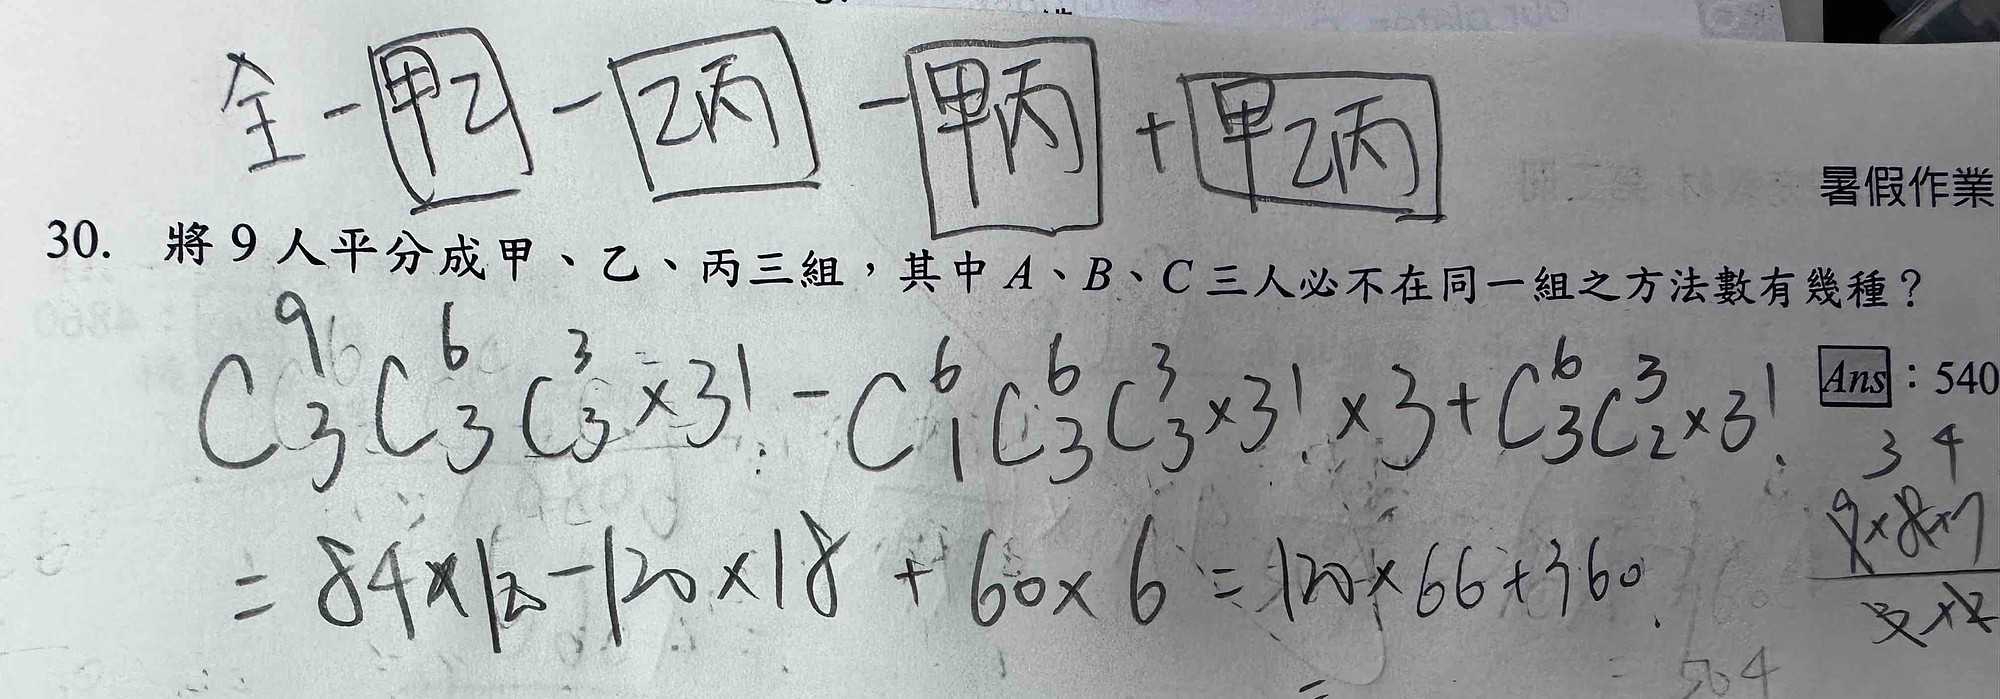 全 - 甲乙 - 乙丙 - 甲丙 + 甲乙丙
暑假作業
30. 將 9 人平分成甲、乙、丙三組，其中 A、B、C 三人必不在同一組之方法數有幾種？
Ans：540
C^9_3 C^6_3 C^3_3 × 3! - C^6_1 C^6_3 C^3_3 × 3! × 3 + C^6_3 C^3_2 × 3!
3 4
9×8×7
3×2
= 84×120 - 120×18 + 60×6 = 120×66+360
504